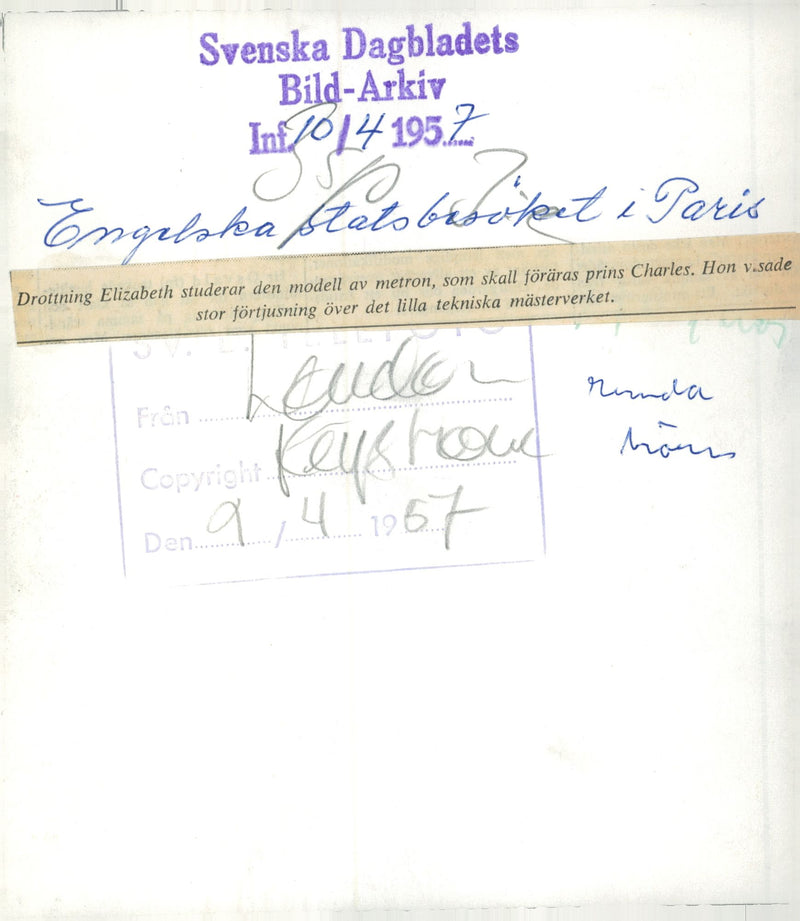 Svenska Dagbladets
Bild-Arkiv
Inf. 10/4 1957
Engelska statsbesöket i Paris
Drottning Elizabeth studerar den modell av metron, som skall föräras prins Charles. Hon v.sade
stor förtjusning över det lilla tekniska mästerverket.
Från London
Copyright Keystone
Den 9/4 1957
runda
hörn